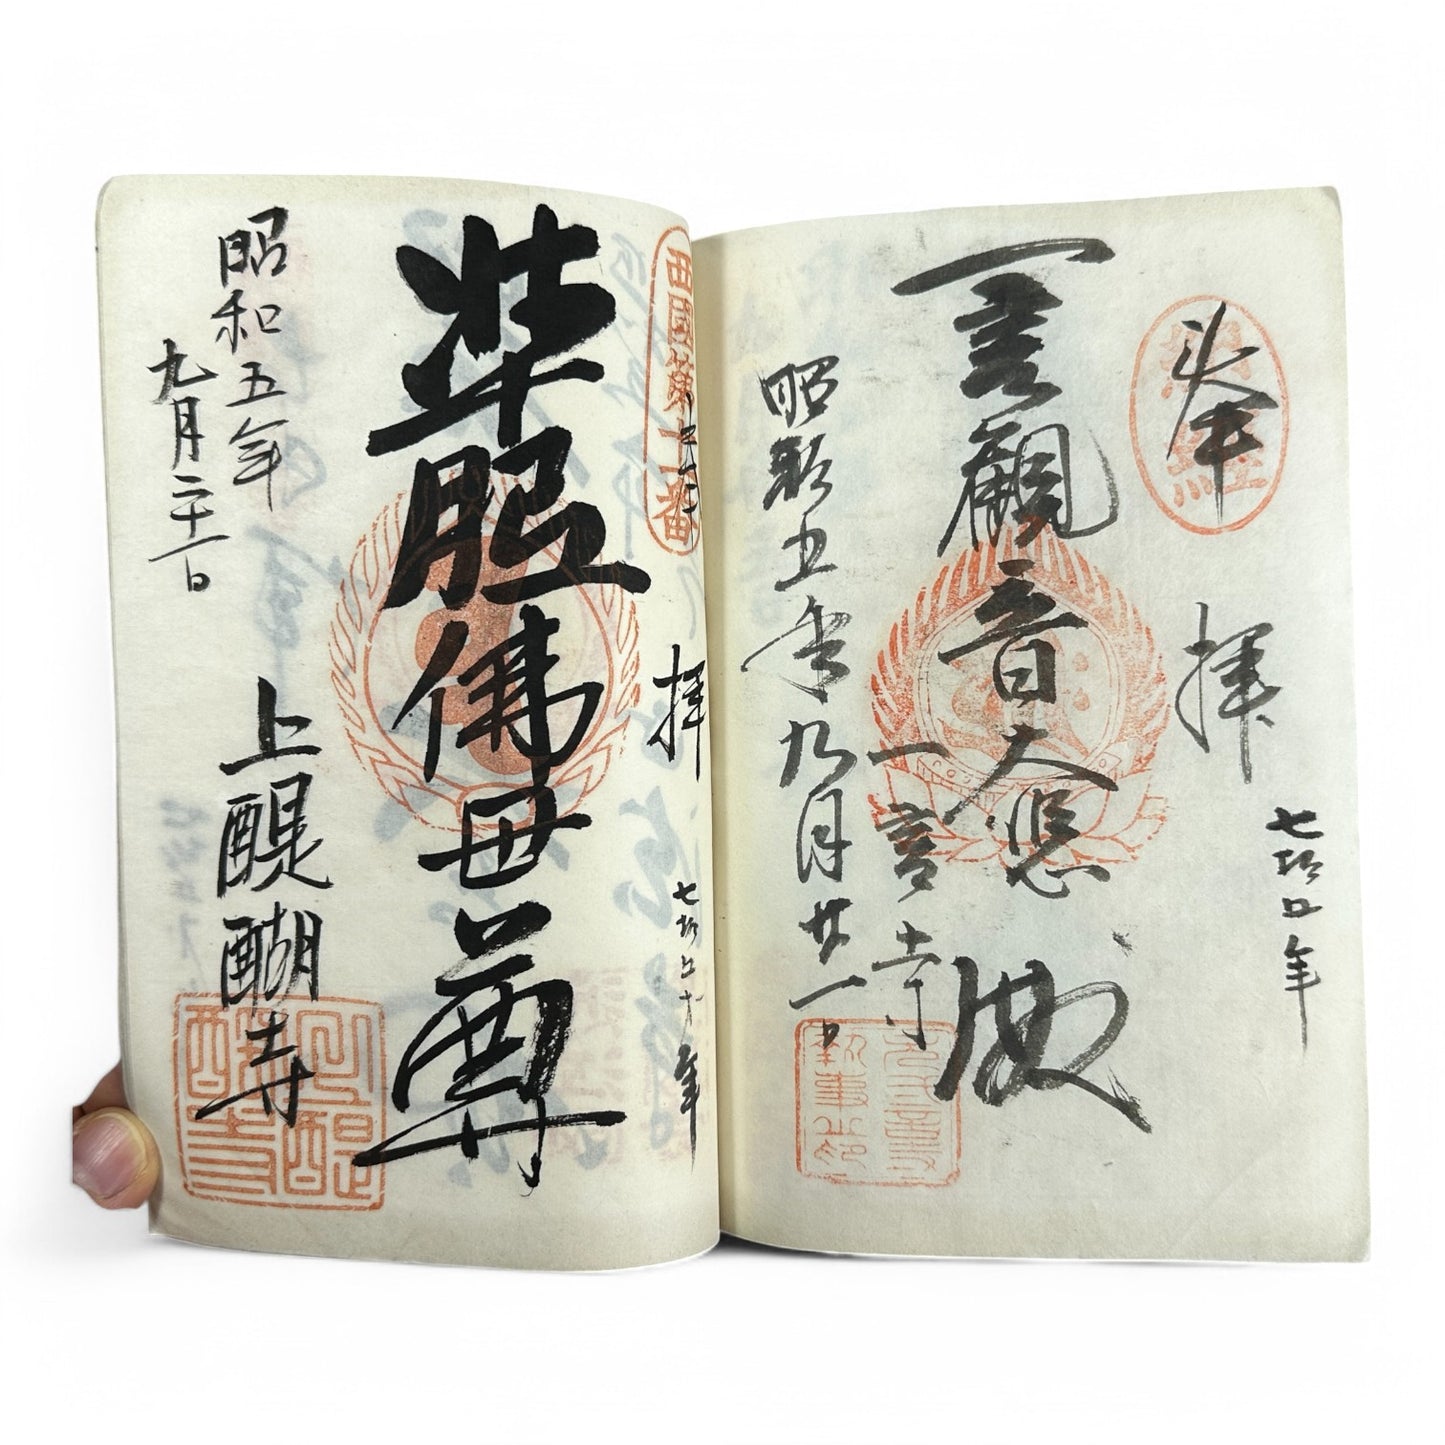 奉
拝
七拾四年
一言観音大悲殿
一言寺
昭和五年九月廿一日
西國第十一番
奉
拝
七拾四年
准胝佛世尊
上醍醐寺
昭和五年
九月二十一日